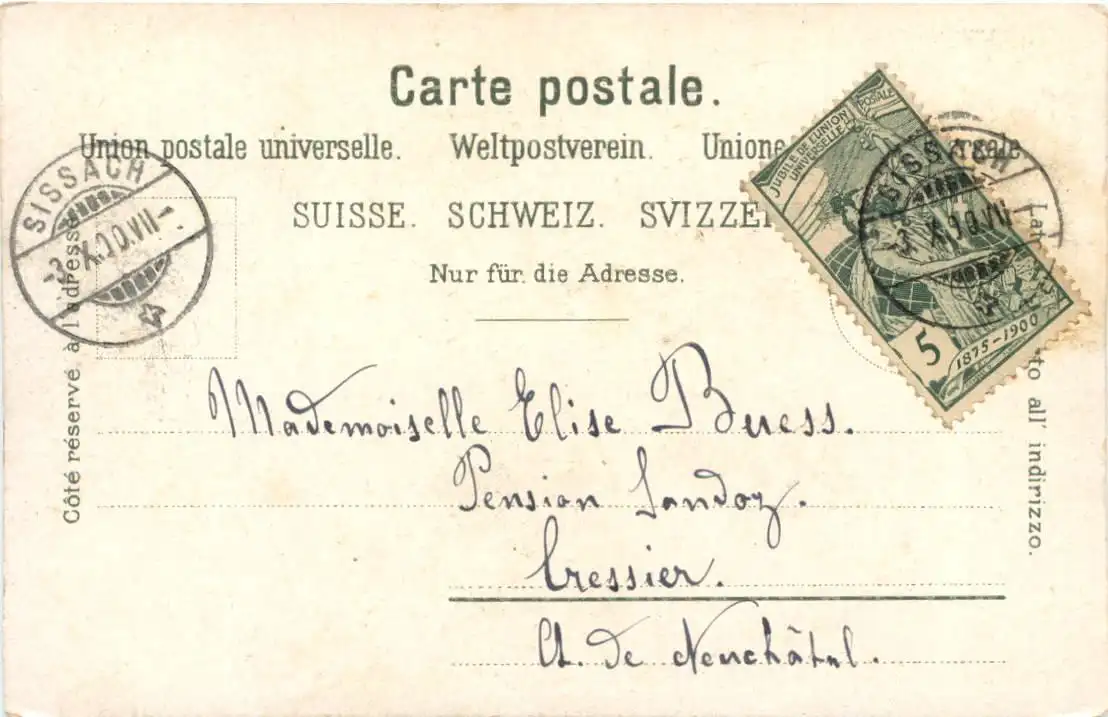 Carte postale.
Union postale universelle. Weltpostverein. Unione
SUISSE. SCHWEIZ. SVIZZE
Nur für die Adresse.
Côté réservé à l'adresse
Lat to all' indirizzo.
JUBILÉ DE L'UNION
POSTALE
UNIVERSELLE
5
1875-1900
SISSACH
-3. X.00.VII
SISSACH
-3. X.00.VII
Mademoiselle Elise Buess.
Pension Sandoz.
Cressier.
Ct. de Neuchâtel.